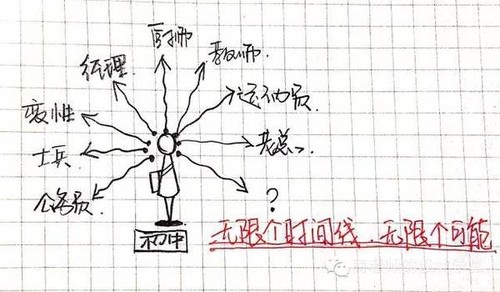 厨师
经理
教师
运动员
变性
老总
士兵
?
公务员
无限个时间线、无限个可能
初中